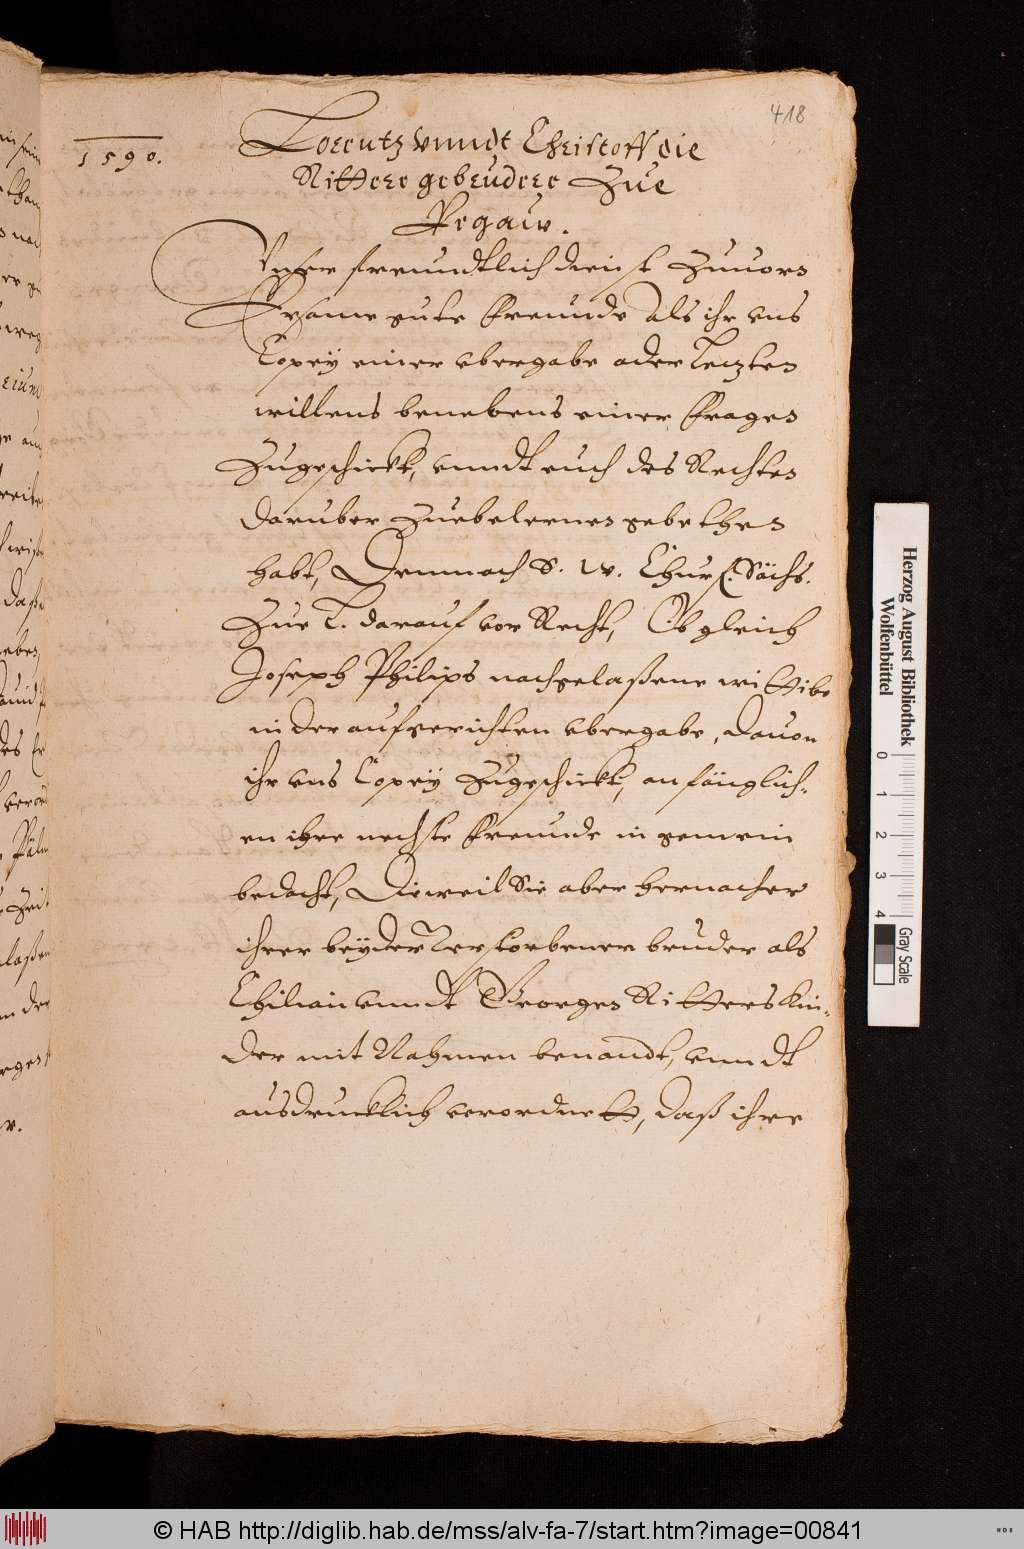 418
1590.
Lorentz vnndt Christoff die
Rittere gebrudere Zue
Pegaw.
Vnser freundtlich dienst Zuuorn
Ersame gute Freunde Als ihr vns
Copeÿ einer vbergabe oder letzten
willens benebens einer Fragen
Zugeschickt, vnndt euch des Rechten
daruber Zuebelernen gebethen
habt, Demnach S. W. Churf. Sächs.
Zue L. darauf vor Recht, Ob gleich
Joseph Philips nachgelaßene wittibe
in der aufgerichten vbergabe, dauon
ihr vns Copeÿ Zugeschickt, anfänglich-
en ihre nechste Freunde in gemein
bedacht, Dieweil Sie aber hernacher
ihrer beÿder Verstorbener bruder als
Chilian vnndt Georgen Ritters Kin-
der mit Nahmen benandt, vnndt
ausdrucklich verordnett, daß ihre
Herzog August Bibliothek
Wolfenbüttel
0 1 2 3 4
Gray Scale
© HAB http://diglib.hab.de/mss/alv-fa-7/start.htm?image=00841